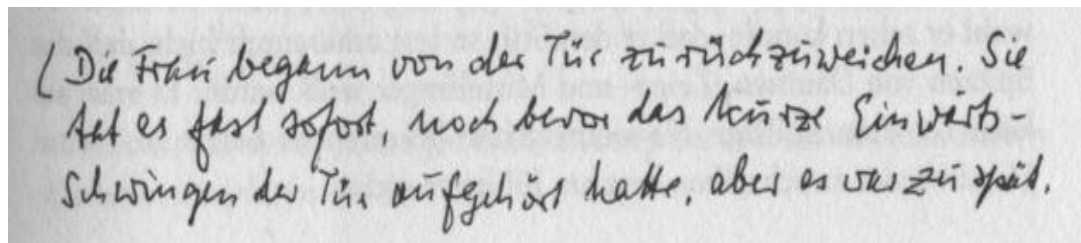 (Die Frau begann von der Tür zurückzuweichen. Sie
tat es fast sofort, noch bevor das kurze Einwärts-
Schwingen der Tür aufgehört hatte, aber es war zu spät.